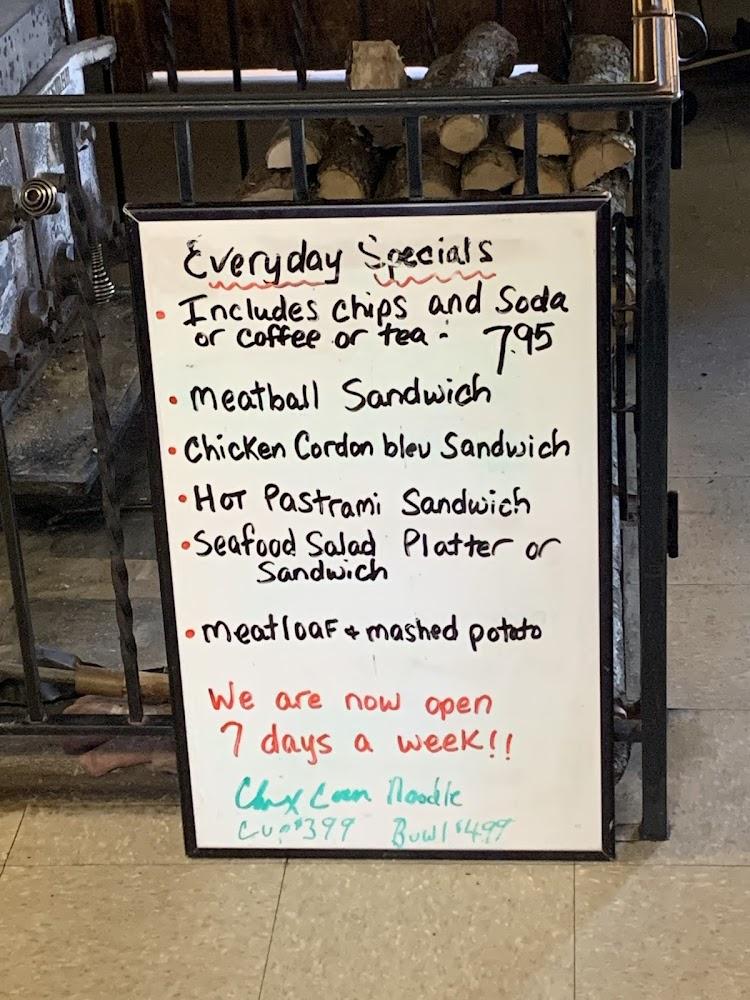 Everyday Specials
• Includes chips and Soda
or coffee or tea - 7.95
• Meatball Sandwich
• Chicken Cordon bleu Sandwich
• Hot Pastrami Sandwich
• Seafood Salad Platter or
Sandwich
• meatloaf + mashed potato
We are now open
7 days a week!!
Chix Corn Noodle
Cup $399 Bowl $499